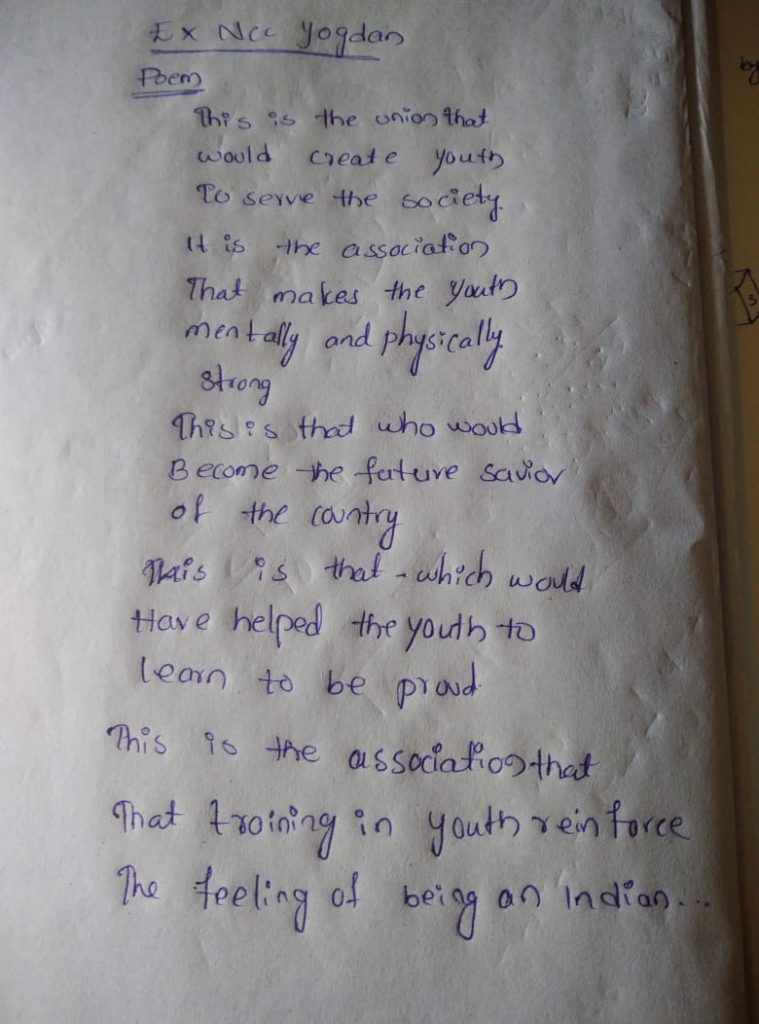 Ex Ncc Yogdan
Poem
This is the union that
would create youth
To serve the society.
It is the association
That makes the youth
mentally and physically.
strong
This is that who would
Become the future savior
of the country
This is that - which would
Have helped the youth to
learn to be proud
This is the association that
That training in youth reinforce
The feeling of being an Indian...
by
3